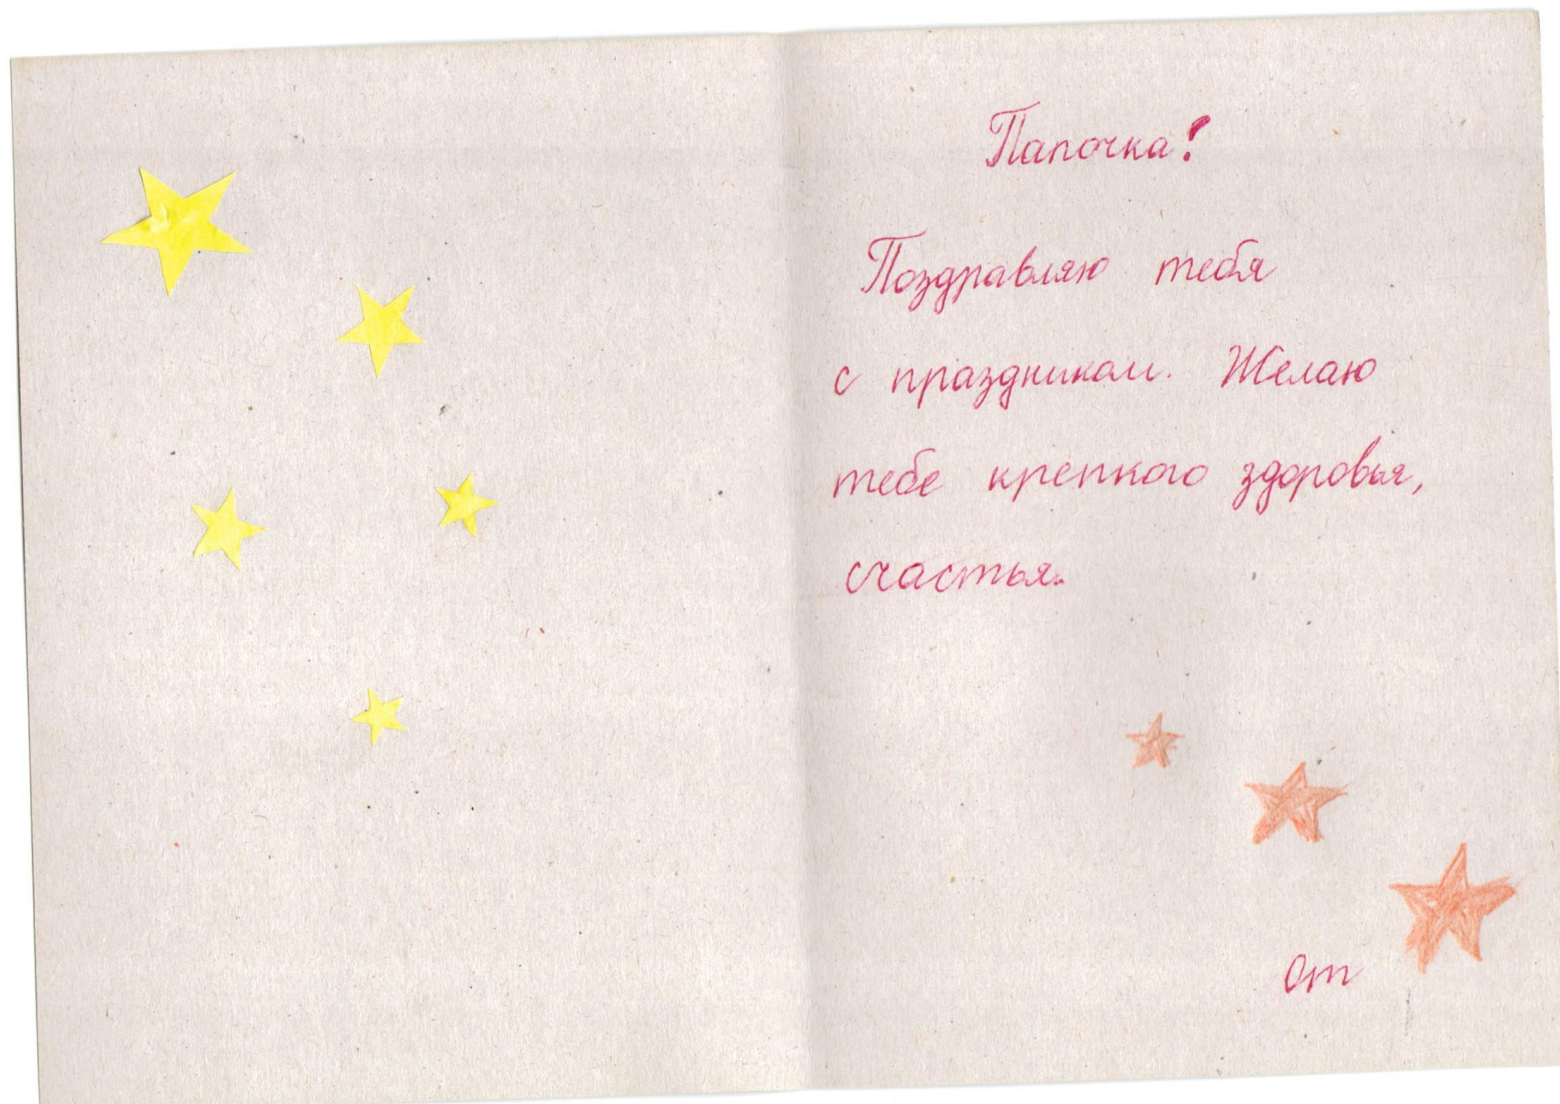 Папочка!
Поздравляю тебя
с праздником. Желаю
тебе крепкого здоровья,
счастья.
От